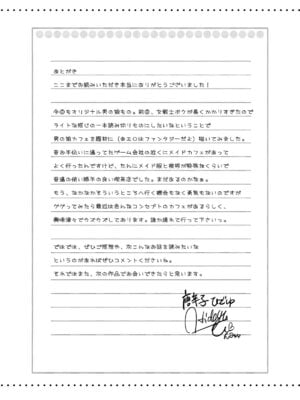 あとがき
ここまでお読みいただき本当にありがとうございました！
今回もオリジナル男の娘もの。前回、女戦士ボクが長くかかりすぎたので
ライトな感じの一本読み切りものにしたいなということで
男の娘カフェを題材に（全エロはファンタジーだよ）描いてみました。
昔お手伝いに通ってたゲーム会社の近くにメイドカフェがあって
よく行ったんですけど、たんにメイド服と挨拶が特殊なくらいで
普通の使い勝手の良い喫茶店でした。まだあるのかなぁ。
もう、なかなかそういうところへ行く機会もなく勇気もないのですが
ググってみたら最近は色んなコンセプトのカフェがあるらしく、
興味津々でウズウズしております。誰か連れて行って下さいっ。
ではでは、ぜひご感想や、次こんなお話を読みたいな
というのがあればぜひコメントくださいね。
それではまた、次の作品でお会いできたらと思います。